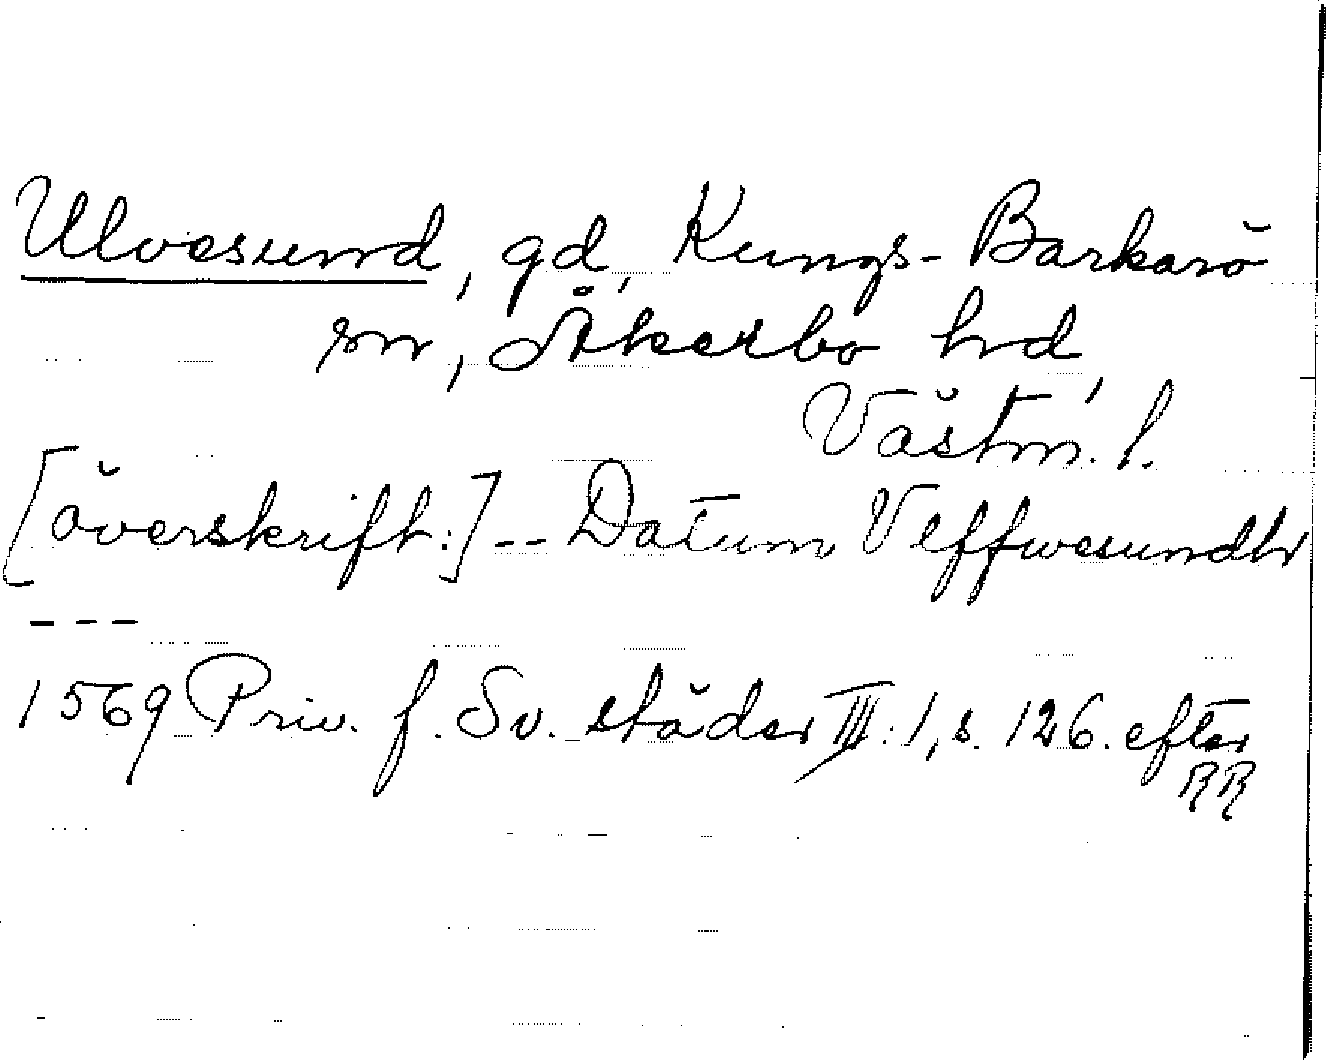 Ulvesund, gd, Kungs-Barkarö
sn, Åkerbo hd,
Västm. l.
[överskrift:] -- Datum Vlffwesundh
---
1569 Priv. f. Sv. städer III:1, s. 126. efter
RR